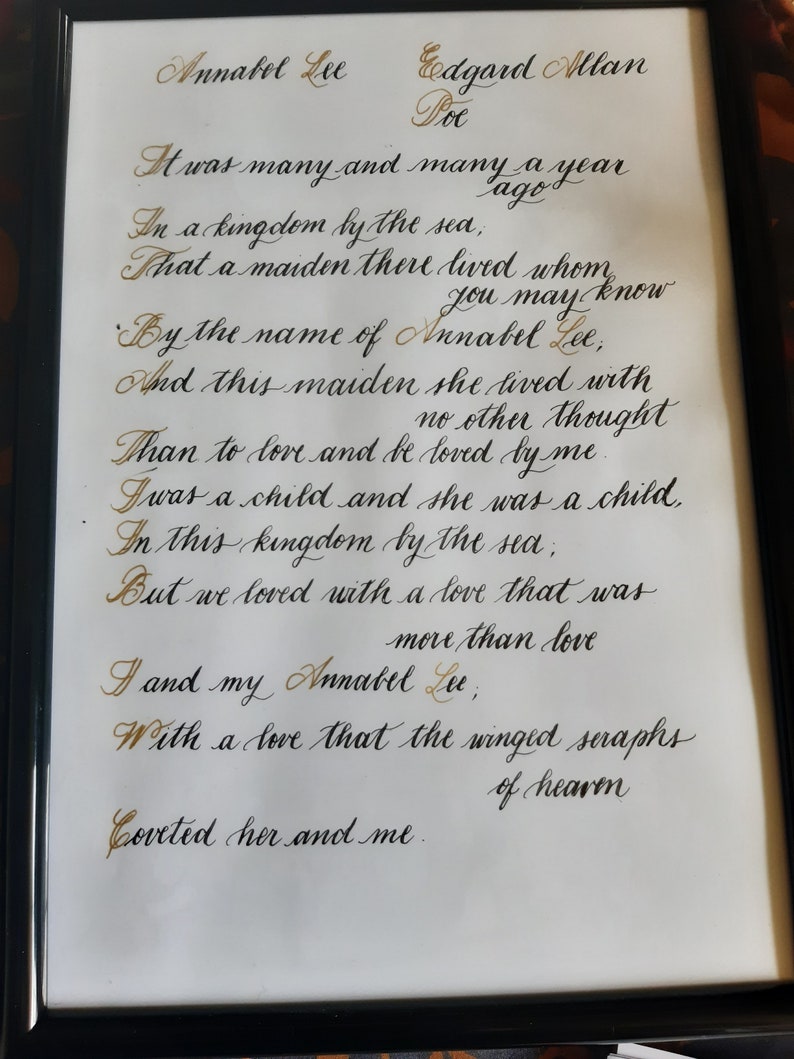 Annabel Lee Edgard Allan
Poe
It was many and many a year
ago
In a kingdom by the sea,
That a maiden there lived whom
you may know
By the name of Annabel Lee;
And this maiden she lived with
no other thought
Than to love and be loved by me.
I was a child and she was a child,
In this kingdom by the sea;
But we loved with a love that was
more than love
I and my Annabel Lee;
With a love that the winged seraphs
of heaven
Coveted her and me.